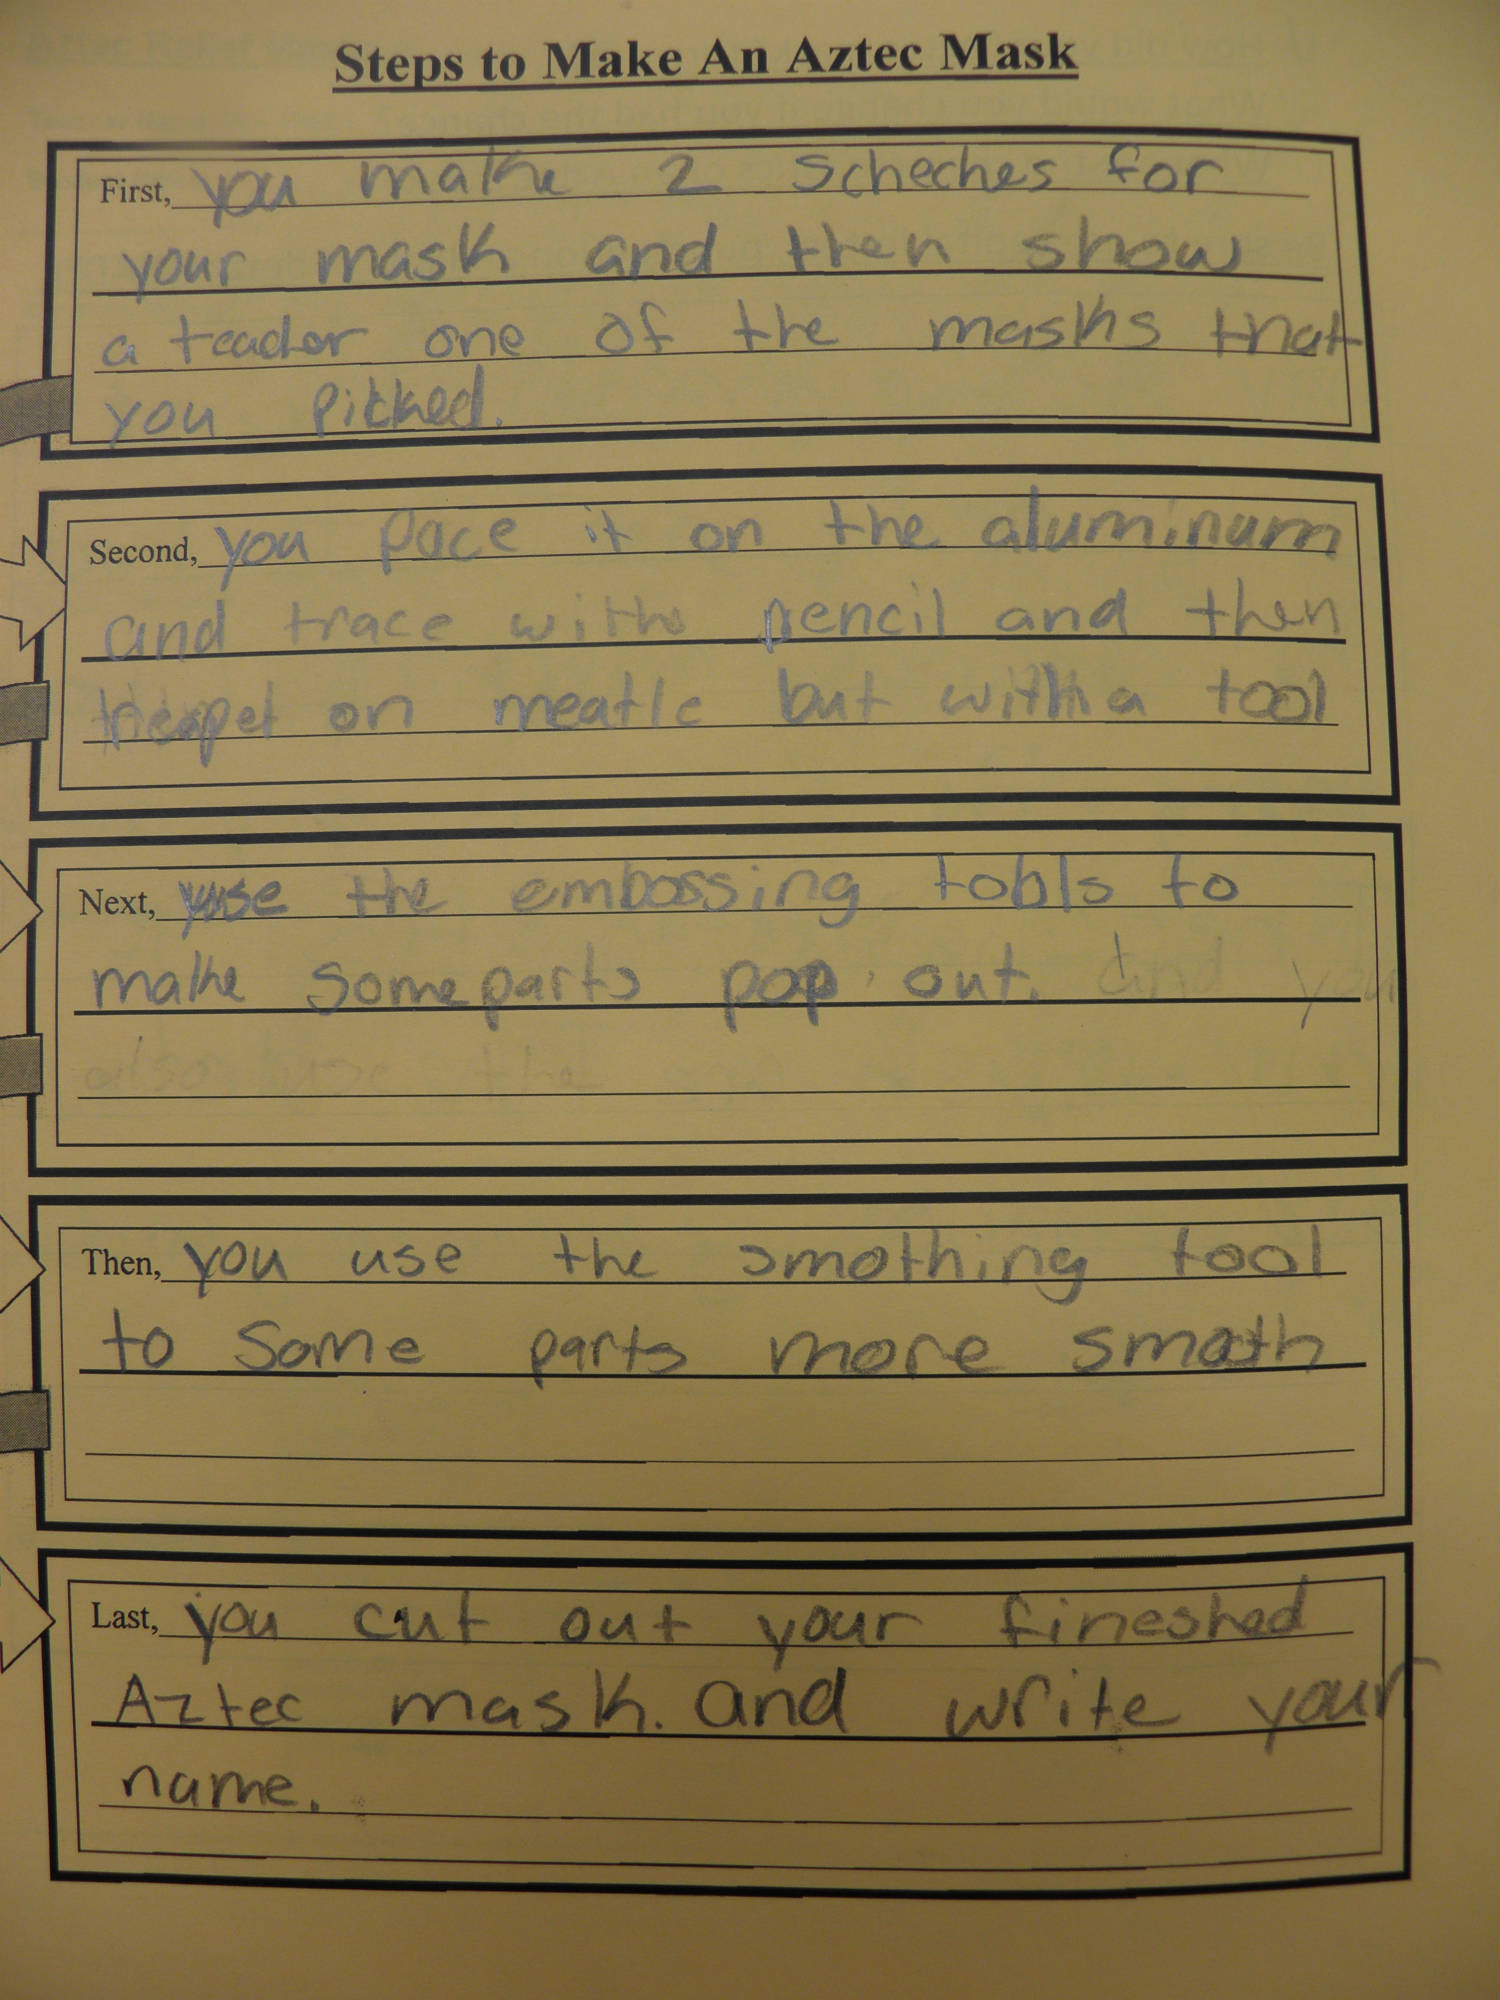 Steps to Make An Aztec Mask
First, you make 2 scheches for
your mask and then show
a teacher one of the masks that
you picked.
Second, you pace it on the aluminum
and trace with pencil and then
on meatle but with a tool
Next, use the embossing tools to
make some parts pop out. and you
also use the
Then, you use the smothing tool
to some parts more smoth
Last, you cut out your fineshed
Aztec mask. and write your
name.